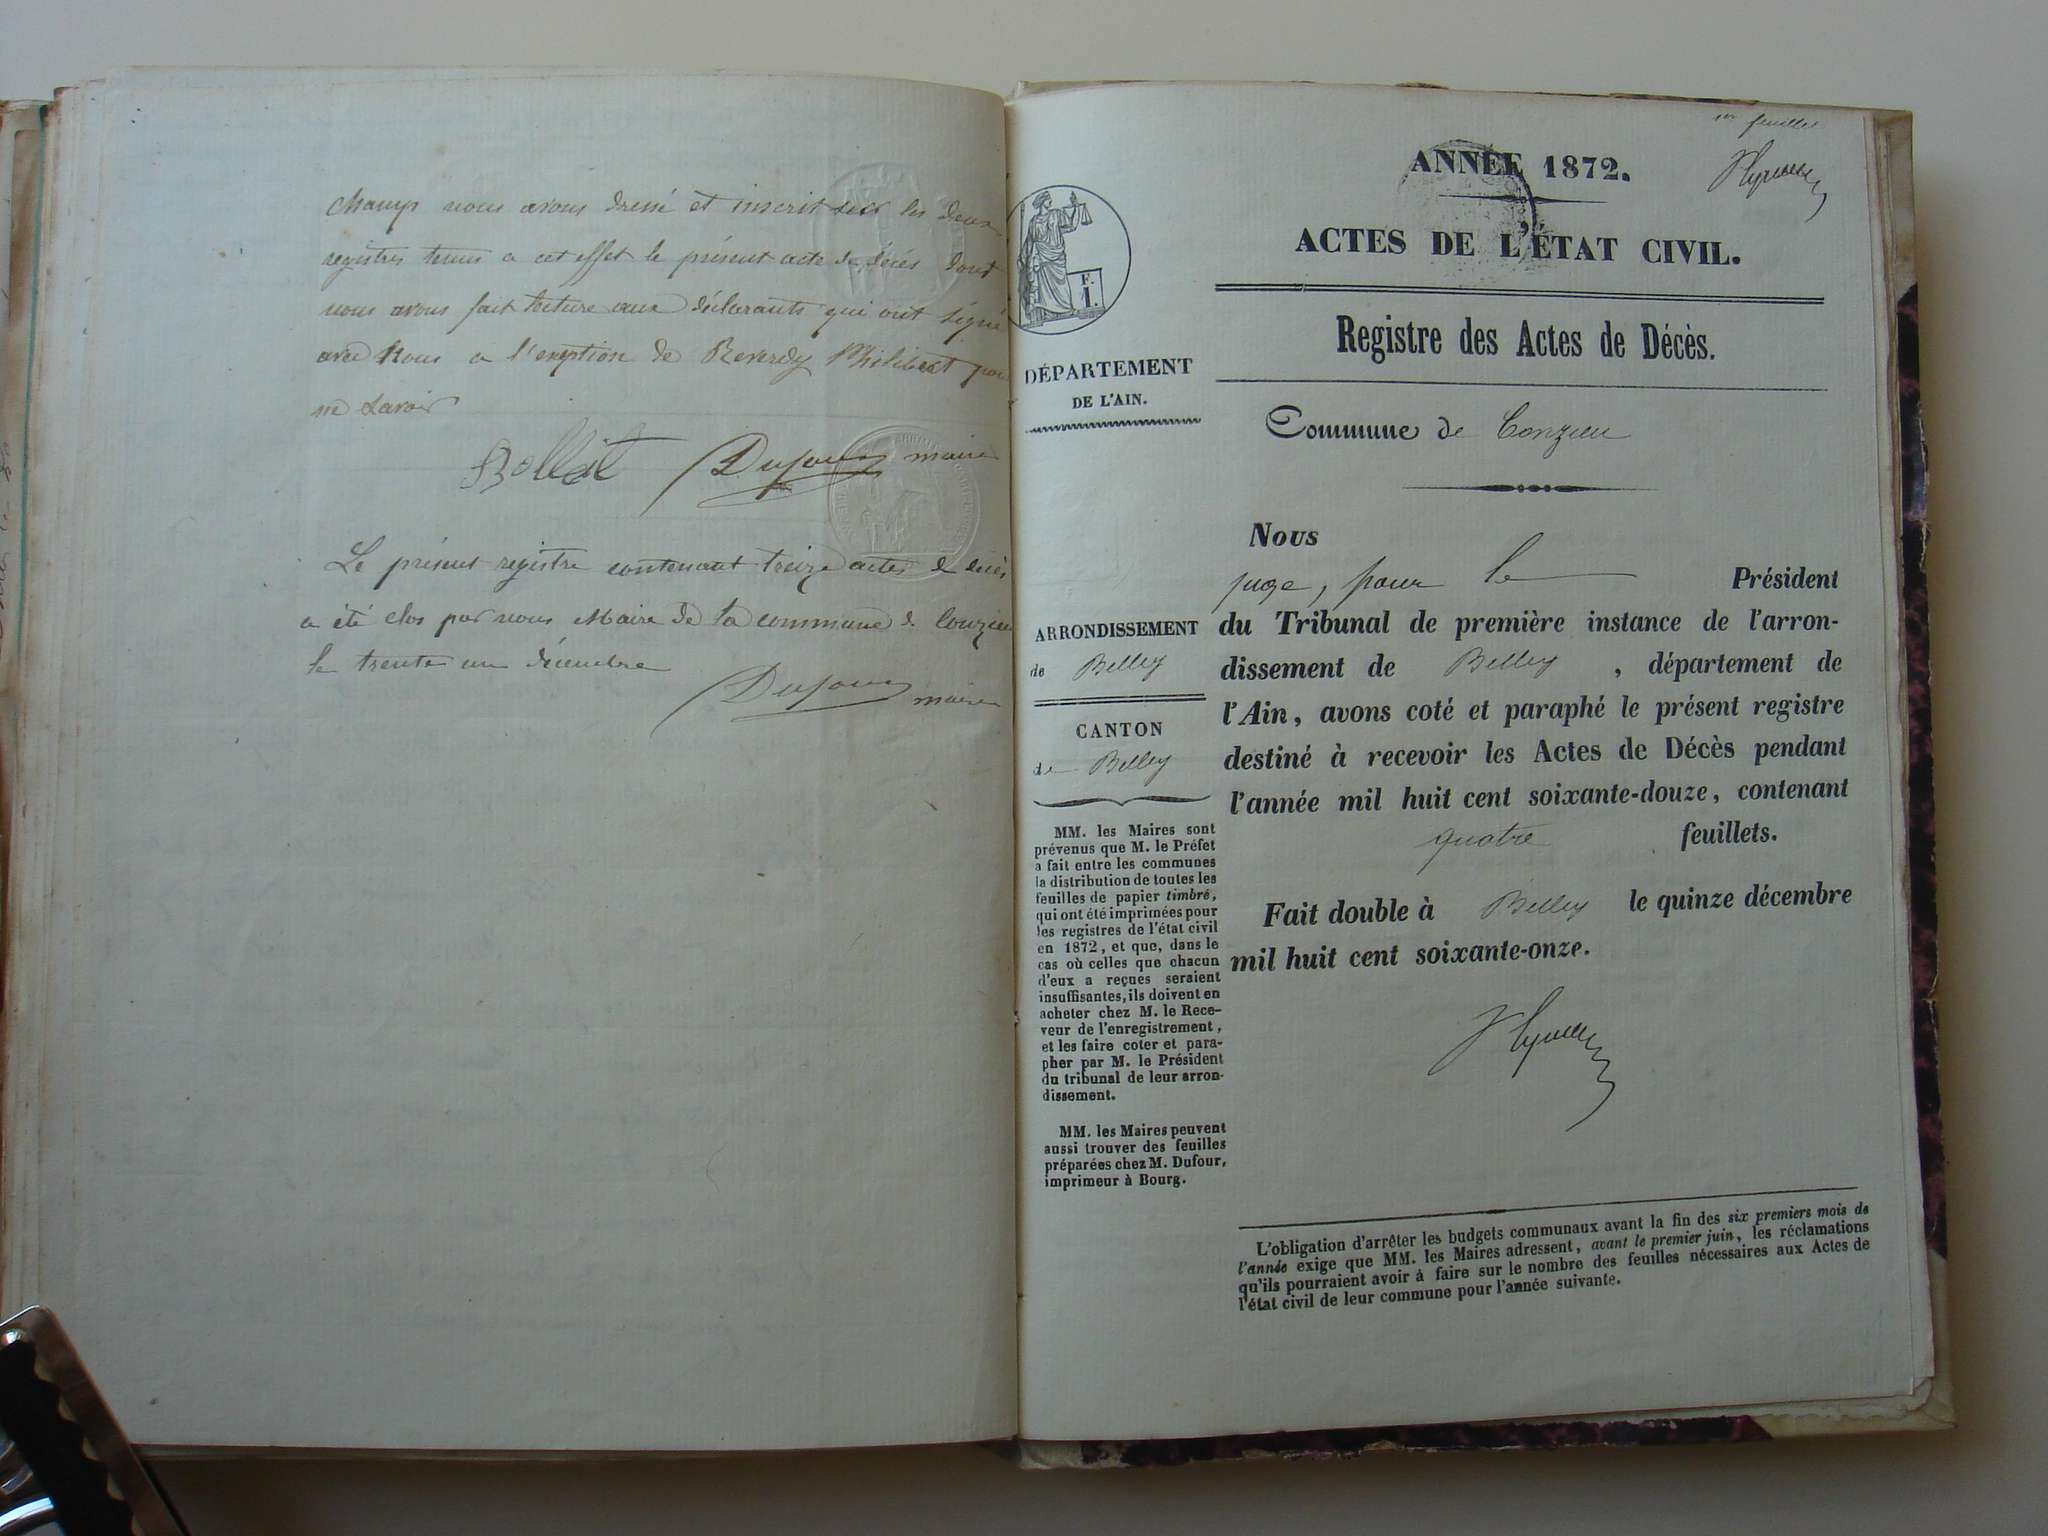 champ nous avons dressé et inscrit sur les deux
registres tenus a cet effet le présent acte de décès dont
nous avons fait lecture aux déclarants qui ont signé
avec nous a l'exeption de Reverdy Philibert pour
ne savoir
Bollat Dufour maire
Le présent registre contenant treize actes de décès
a été clos par nous Maire de la commune de Conzieu
le trente un décembre
Dufour maire
1er feuillet
ANNÉE 1872.
ACTES DE L'ÉTAT CIVIL.
Registre des Actes de Décès.
F.
I.
DÉPARTEMENT
DE L'AIN.
Commune de Conzieu
ARRONDISSEMENT
de Belley
CANTON
de Belley
MM. les Maires sont
prévenus que M. le Préfet
a fait entre les communes
la distribution de toutes les
feuilles de papier timbré,
qui ont été imprimées pour
les registres de l'état civil
en 1872, et que, dans le
cas où celles que chacun
d'eux a reçues seraient
insuffisantes, ils doivent en
acheter chez M. le Rece-
veur de l'enregistrement,
et les faire coter et para-
pher par M. le Président
du tribunal de leur arron-
dissement.
MM. les Maires peuvent
aussi trouver des feuilles
préparées chez M. Dufour,
imprimeur à Bourg.
Nous
juge, pour le Président
du Tribunal de première instance de l'arron-
dissement de Belley, département de
l'Ain, avons coté et paraphé le présent registre
destiné à recevoir les Actes de Décès pendant
l'année mil huit cent soixante-douze, contenant
quatre feuillets.
Fait double à Belley le quinze décembre
mil huit cent soixante-onze.
L'obligation d'arrêter les budgets communaux avant la fin des six premiers mois de
l'année exige que MM. les Maires adressent, avant le premier juin, les réclamations
qu'ils pourraient avoir à faire sur le nombre des feuilles nécessaires aux Actes de
l'état civil de leur commune pour l'année suivante.